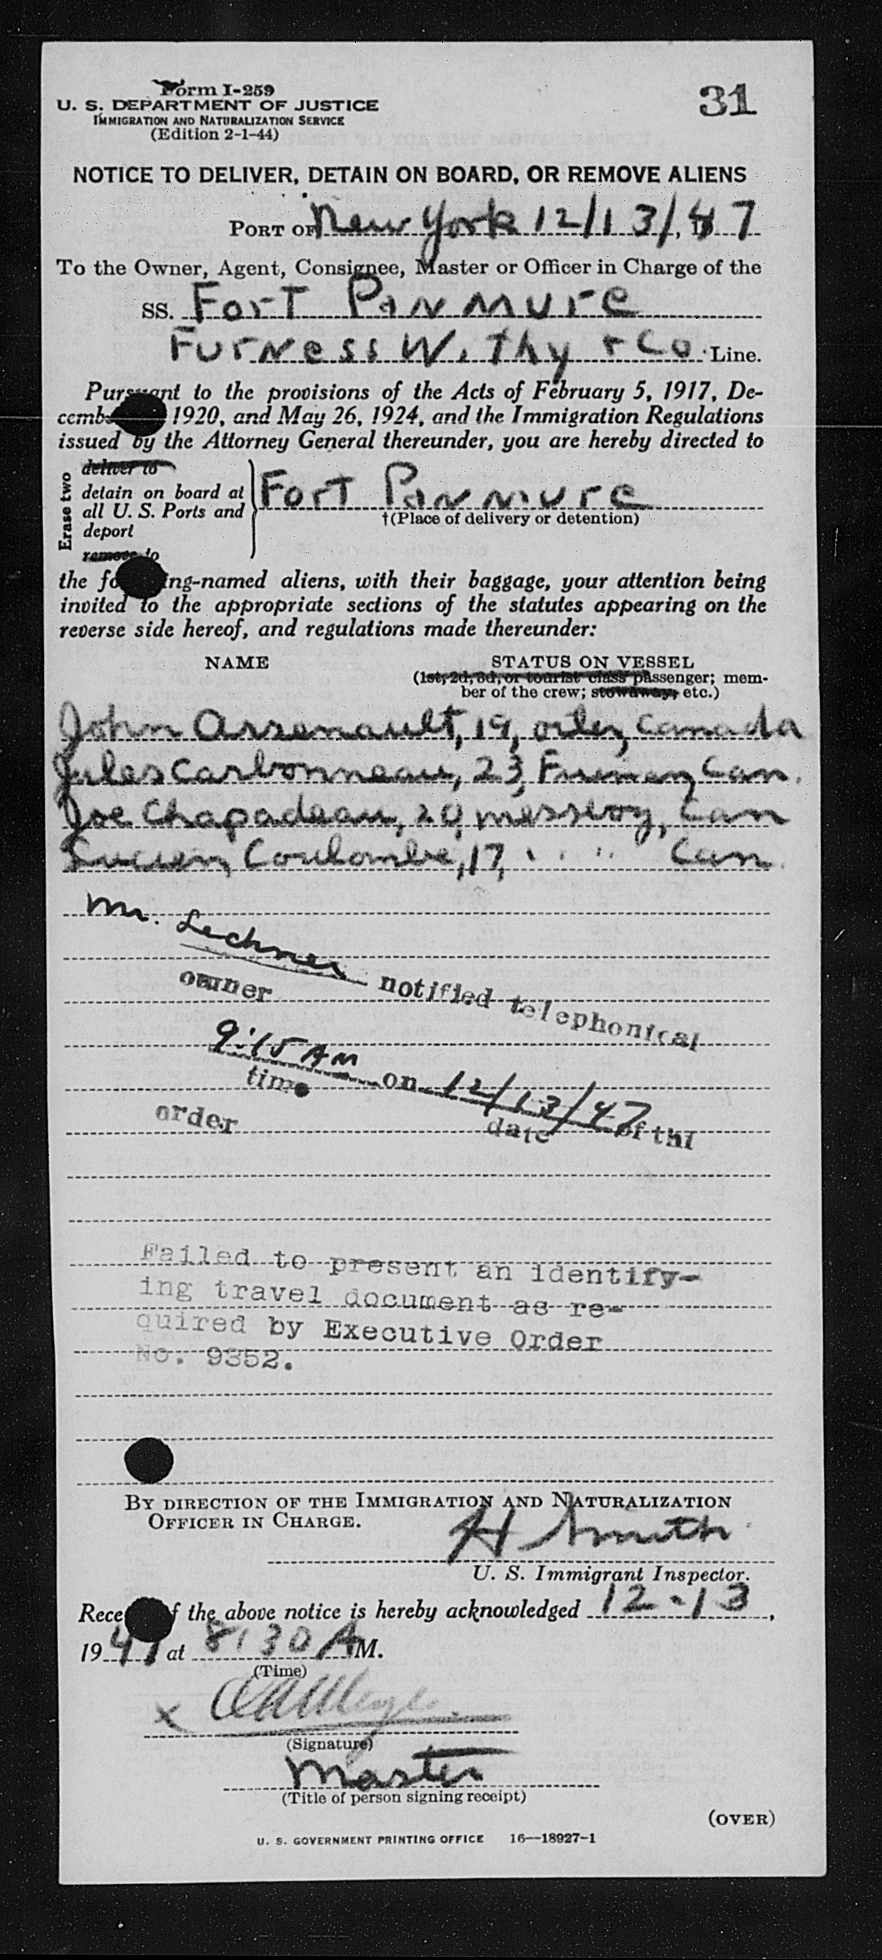 Form I-259
31
U. S. DEPARTMENT OF JUSTICE
IMMIGRATION AND NATURALIZATION SERVICE
(Edition 2-1-44)
NOTICE TO DELIVER, DETAIN ON BOARD, OR REMOVE ALIENS
PORT OF New York 12/13/, 47
To the Owner, Agent, Consignee, Master or Officer in Charge of the
SS. Fort Panmure
Furness Withy + Co. Line.
Pursuant to the provisions of the Acts of February 5, 1917, De-
cember 1920, and May 26, 1924, and the Immigration Regulations
issued by the Attorney General thereunder, you are hereby directed to
Erase two
deliver to
detain on board at
all U. S. Ports and
deport
remove to
Fort Panmure
†(Place of delivery or detention)
the following-named aliens, with their baggage, your attention being
invited to the appropriate sections of the statutes appearing on the
reverse side hereof, and regulations made thereunder:
NAME
STATUS ON VESSEL
(1st, 2d, 3d, or tourist class passenger; mem-
ber of the crew; stowaway, etc.)
John Arsenault, 19, Canada
Jules Carbonneau, 23, Fireman, Can.
Joe Chapadeau, 20, messboy, Can
Lucien Coulombe, 17, " " Can.
Mr. Lechner notified telephonical
owner
9:15 AM on 12/13/47 of thi
time date
order
Failed to present an identify-
ing travel document as re-
quired by Executive Order
No. 9352.
BY DIRECTION OF THE IMMIGRATION AND NATURALIZATION
OFFICER IN CHARGE.
H Smith
U. S. Immigrant Inspector.
Receipt of the above notice is hereby acknowledged 12-13,
1947 at 8:30 A M.
(Time)
X
(Signature)
Master
(Title of person signing receipt)
(OVER)
U. S. GOVERNMENT PRINTING OFFICE 16—18927-1